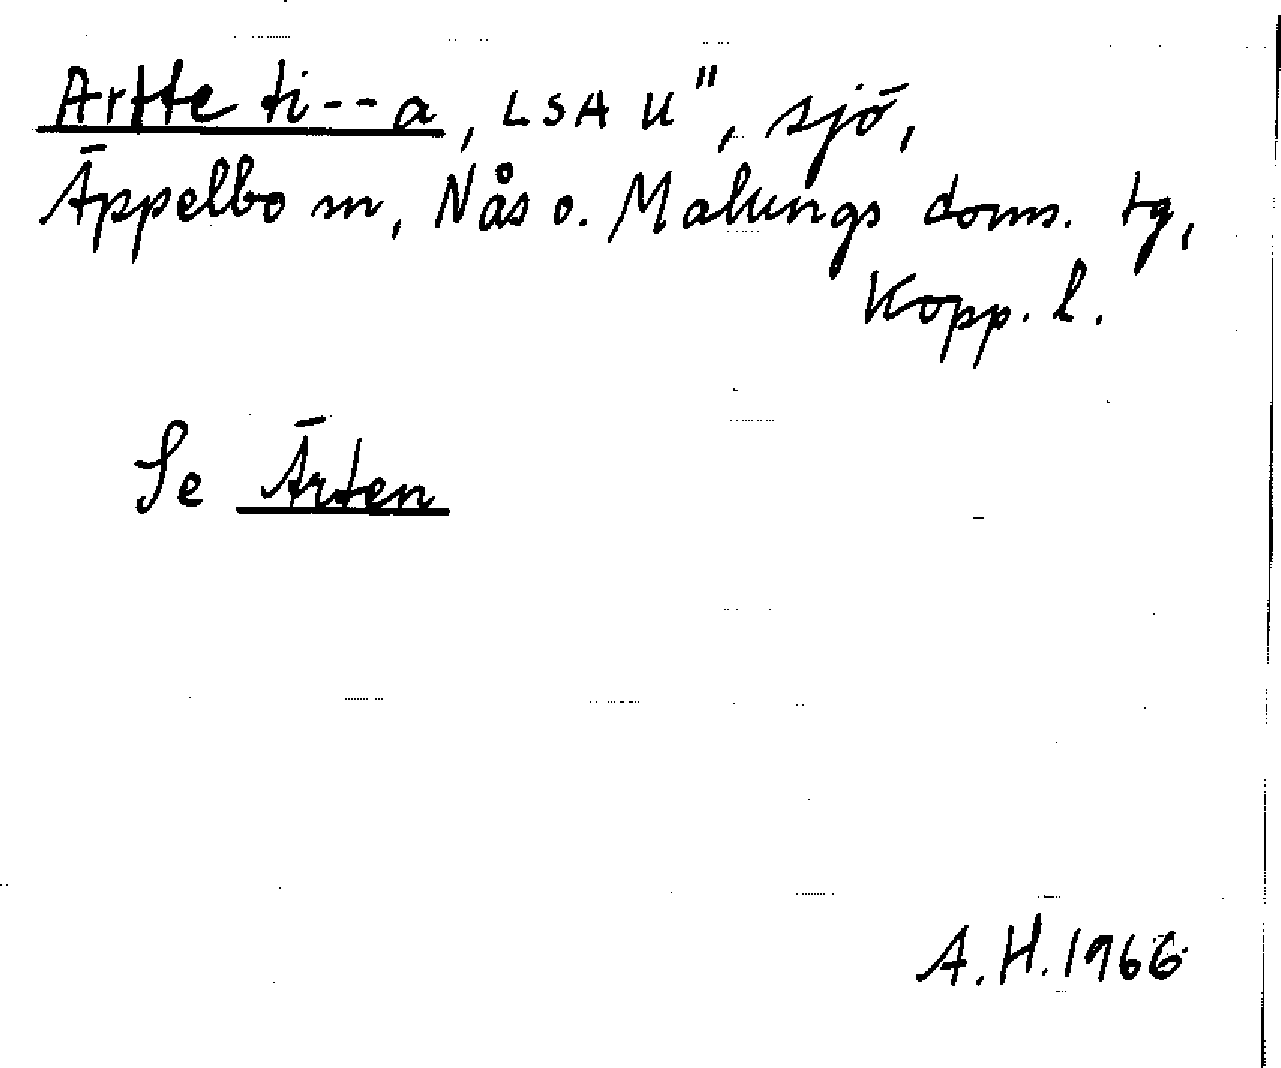 Artte ti--a, LSA U", sjö,
Äppelbo sn, Nås o. Malungs doms. tg,
Kopp. l.
Se Ärten
A.H. 1966